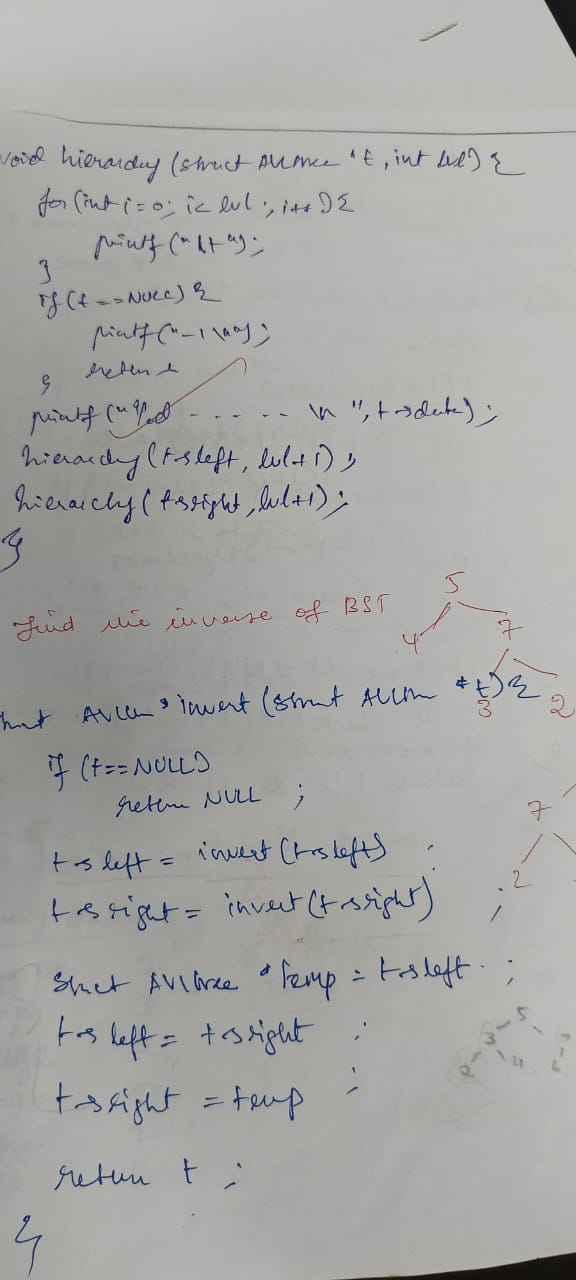 void hierarchy (struct AVLTree *t, int lvl) {
for (int i=0; i< lvl ; i++) {
printf ("\t");
}
if (t == NULL) {
printf ("-1\n");
return;
}
printf ("%d ...... \n", t->data);
hierarchy (t->left, lvl+1);
hierarchy (t->right, lvl+1);
}
find the inverse of BST
5
4 7
3 2
AVLTree * invert (struct AVLTree *t) {
if (t==NULL)
return NULL ;
7
2
t->left = invert (t->left) ;
t->right = invert (t->right) ;
struct AVLTree *temp = t->left ;
t->left = t->right ;
5
3
2 4 6
t->right = temp ;
return t ;
}